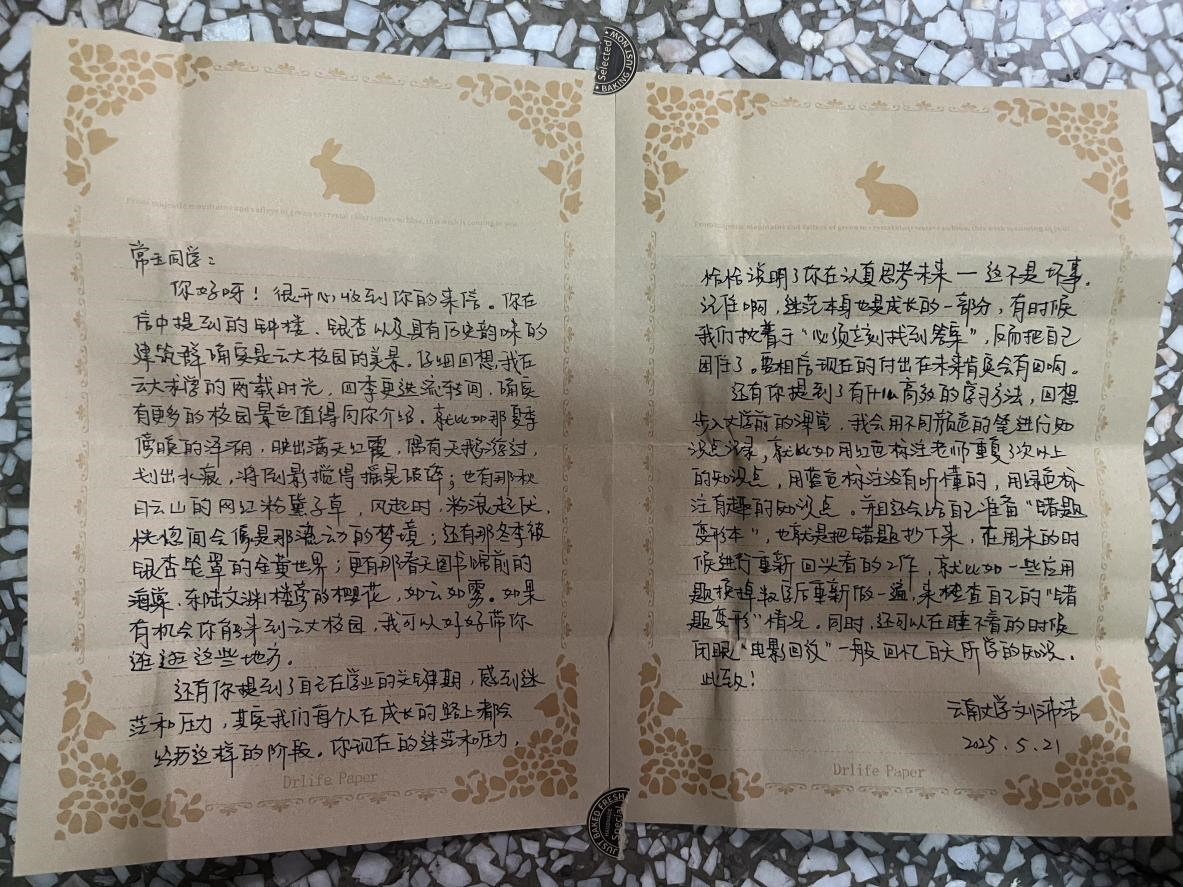 Selected
BAKING JUST NOW
常玉同学：
你好呀！很开心收到你的来信。你在
信中提到的钟楼、银杏以及具有历史韵味的
建筑群确实是云大校园的美景。仔细回想，我在
云大求学的两载时光，四季更迭流转间，确实
有更多的校园景色值得同你介绍。就比如那夏季
傍晚的泽湖，映出满天红霞，偶有天鹅游过，
划出水痕，将倒影搅得摇晃破碎；也有那秋
日云山的网红粉黛子草，风起时，粉浪起伏，
恍惚间会像是那流动的梦境；还有那冬季被
银杏笼罩的金黄世界；更有那春天图书馆前的
海棠，东陆文渊楼旁的樱花，如云如雾。如果
有机会你能来到云大校园，我可以好好带你
逛逛这些地方。
还有你提到了自己在学业的关键期，感到迷
茫和压力，其实我们每个人在成长的路上都会
经历这样的阶段。你现在的迷茫和压力，
Drlife Paper
恰恰说明了你在认真思考未来——这不是坏事。
记住啊，迷茫本身也是成长的一部分，有时候
我们执着于“必须立刻找到答案”，反而把自己
困住了。要相信现在的付出在未来肯定会有回响。
还有你提到了有什么高效的学习方法，回想
步入大学前的课堂，我会用不同颜色的笔进行知
识点记录，就比如用红色标注老师重复3次以上
的知识点，用蓝色标注没有听懂的，用绿色标
注有趣的知识点。并且还会给自己准备“错题
变形本”，也就是把错题抄下来，在周末的时
候进行重新回头看的工作，就比如一些应用
题换掉数字后重新做一遍，来检查自己的“错
题变形”情况。同时，还可以在睡不着的时候
闭眼“电影回放”一般回忆白天所学的知识。
此致！
云南大学刘沛洁
2025.5.21
Drlife Paper
JUST BAKED FRESH
Special